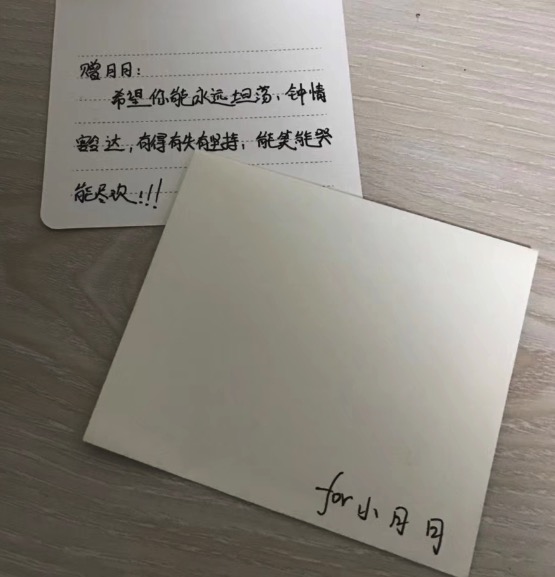 赠月月：
希望你能永远坦荡，钟情
豁达，有得有失有坚持，能笑能哭
能尽欢！！！
for小月月